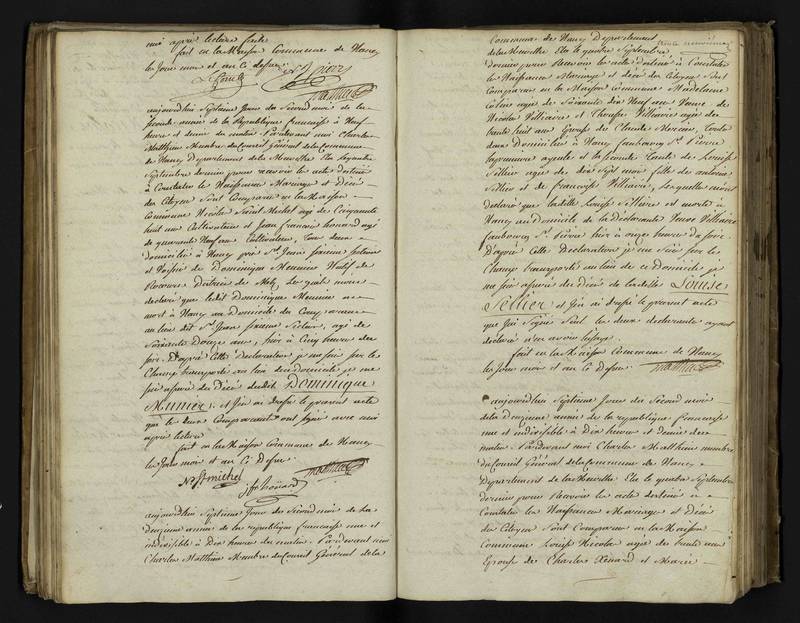 moi après lecture faite
fait en la Maison Commune de Nancy
les jour mois et an ci dessus
aujourdhui Septieme Jour du Second mois de la
seconde année de la Republique francaise à Neuf
heure et demie du matin. Pardevant moi Charles
Matthieu Membre du Conseil Général de la Commune
de Nancy Departement de la Meurthe Elu le quatre
Septembre dernier pour recevoir les acte destinés
à Constater les Naissances Mariages et Décés
des Citoyens Sont Comparus en la Maison
Commune Nicolas Saint Michel agé de Cinquante
huit ans Cultivateur et Jean francois honoré agé
de quarante Neuf ans Cultivateur, tous deux
domicilié à Nancy près St. Jean
de Dominique Meunier Natif de
District de Metz Lesquels mont
declaré que ledit Dominique Meunier est
mort à Nancy au Domicile du Comparant
au lieu dit St. Jean agé de
Soixante Douze ans, hier à Cinq heures du
soir. D'après Cette Déclaration je me suis sur le
Champ transporté au lieu du domicile je me
suis assuré du Décés dudit Dominique
Munier, et j'en ai dressé le present acte
que les deux Comparants ont signé avec moi
après lecture
fait en la Maison Commune de Nancy
les Jour mois et an Ci Dessus
N St michel
aujourdhui Septieme Jour du Second mois de la
Deuxieme année de la republique francaise une et
indivisible à Dix heures du matin. Pardevant moi
Charles Matthieu Membre du Conseil Général de la
Commune de Nancy Departement
de la Meurthe Elu le quatre Septembre
dernier pour Recevoir les acte destinés à Constater
les Naissances Mariages et décés des Citoyens Sont
Comparus en la Maison Commune Madelaine
Colin agée de Soixante dix Neuf ans Veuve de
Nicolas Villiaire et Therese Villiaire agée de
trente huit ans Epouse de Claude toutes
deux Domiciliées à Nancy faubourg St. Pierre
la premiere ayeule et la seconde Tante de Louise
Sellier agée de dix Sept mois fille de antoine
Sellier et de francoise Villiaire, Lesquelles mont
declaré que ladite Louise Sellier est morte à
Nancy au Domicile de la Déclarante Veuve Villiaire
faubourg St. Pierre hier à onze heures du soir
D'après Cette Declaration je me suis sur le
Champ transporté au lieu de ce Domicile je
me suis assuré du Décés de ladite Louise
Sellier et j'en ai dressé le present acte
que j'ai Signé Seul les deux declarantes ayant
declaré n'en avoir l'usage.
fait en la Maison Commune de Nancy
les jour mois et an Ci Dessus
aujourdhui Septieme Jour du Second mois
de la Deuxieme année de la republique francaise
une et indivisible à Dix heures et demie du
matin. Pardevant moi Charles Matthieu membre
du Conseil Général de la Commune de Nancy
Departement de la Meurthe Elu le quatre Septembre
dernier pour Recevoir les acte destinés à
Constater les Naissances Mariages et Décés
des Citoyens Sont Comparus en la Maison
Commune Louise Nicolas agée de trente ans
Epouse de Charles et Marie